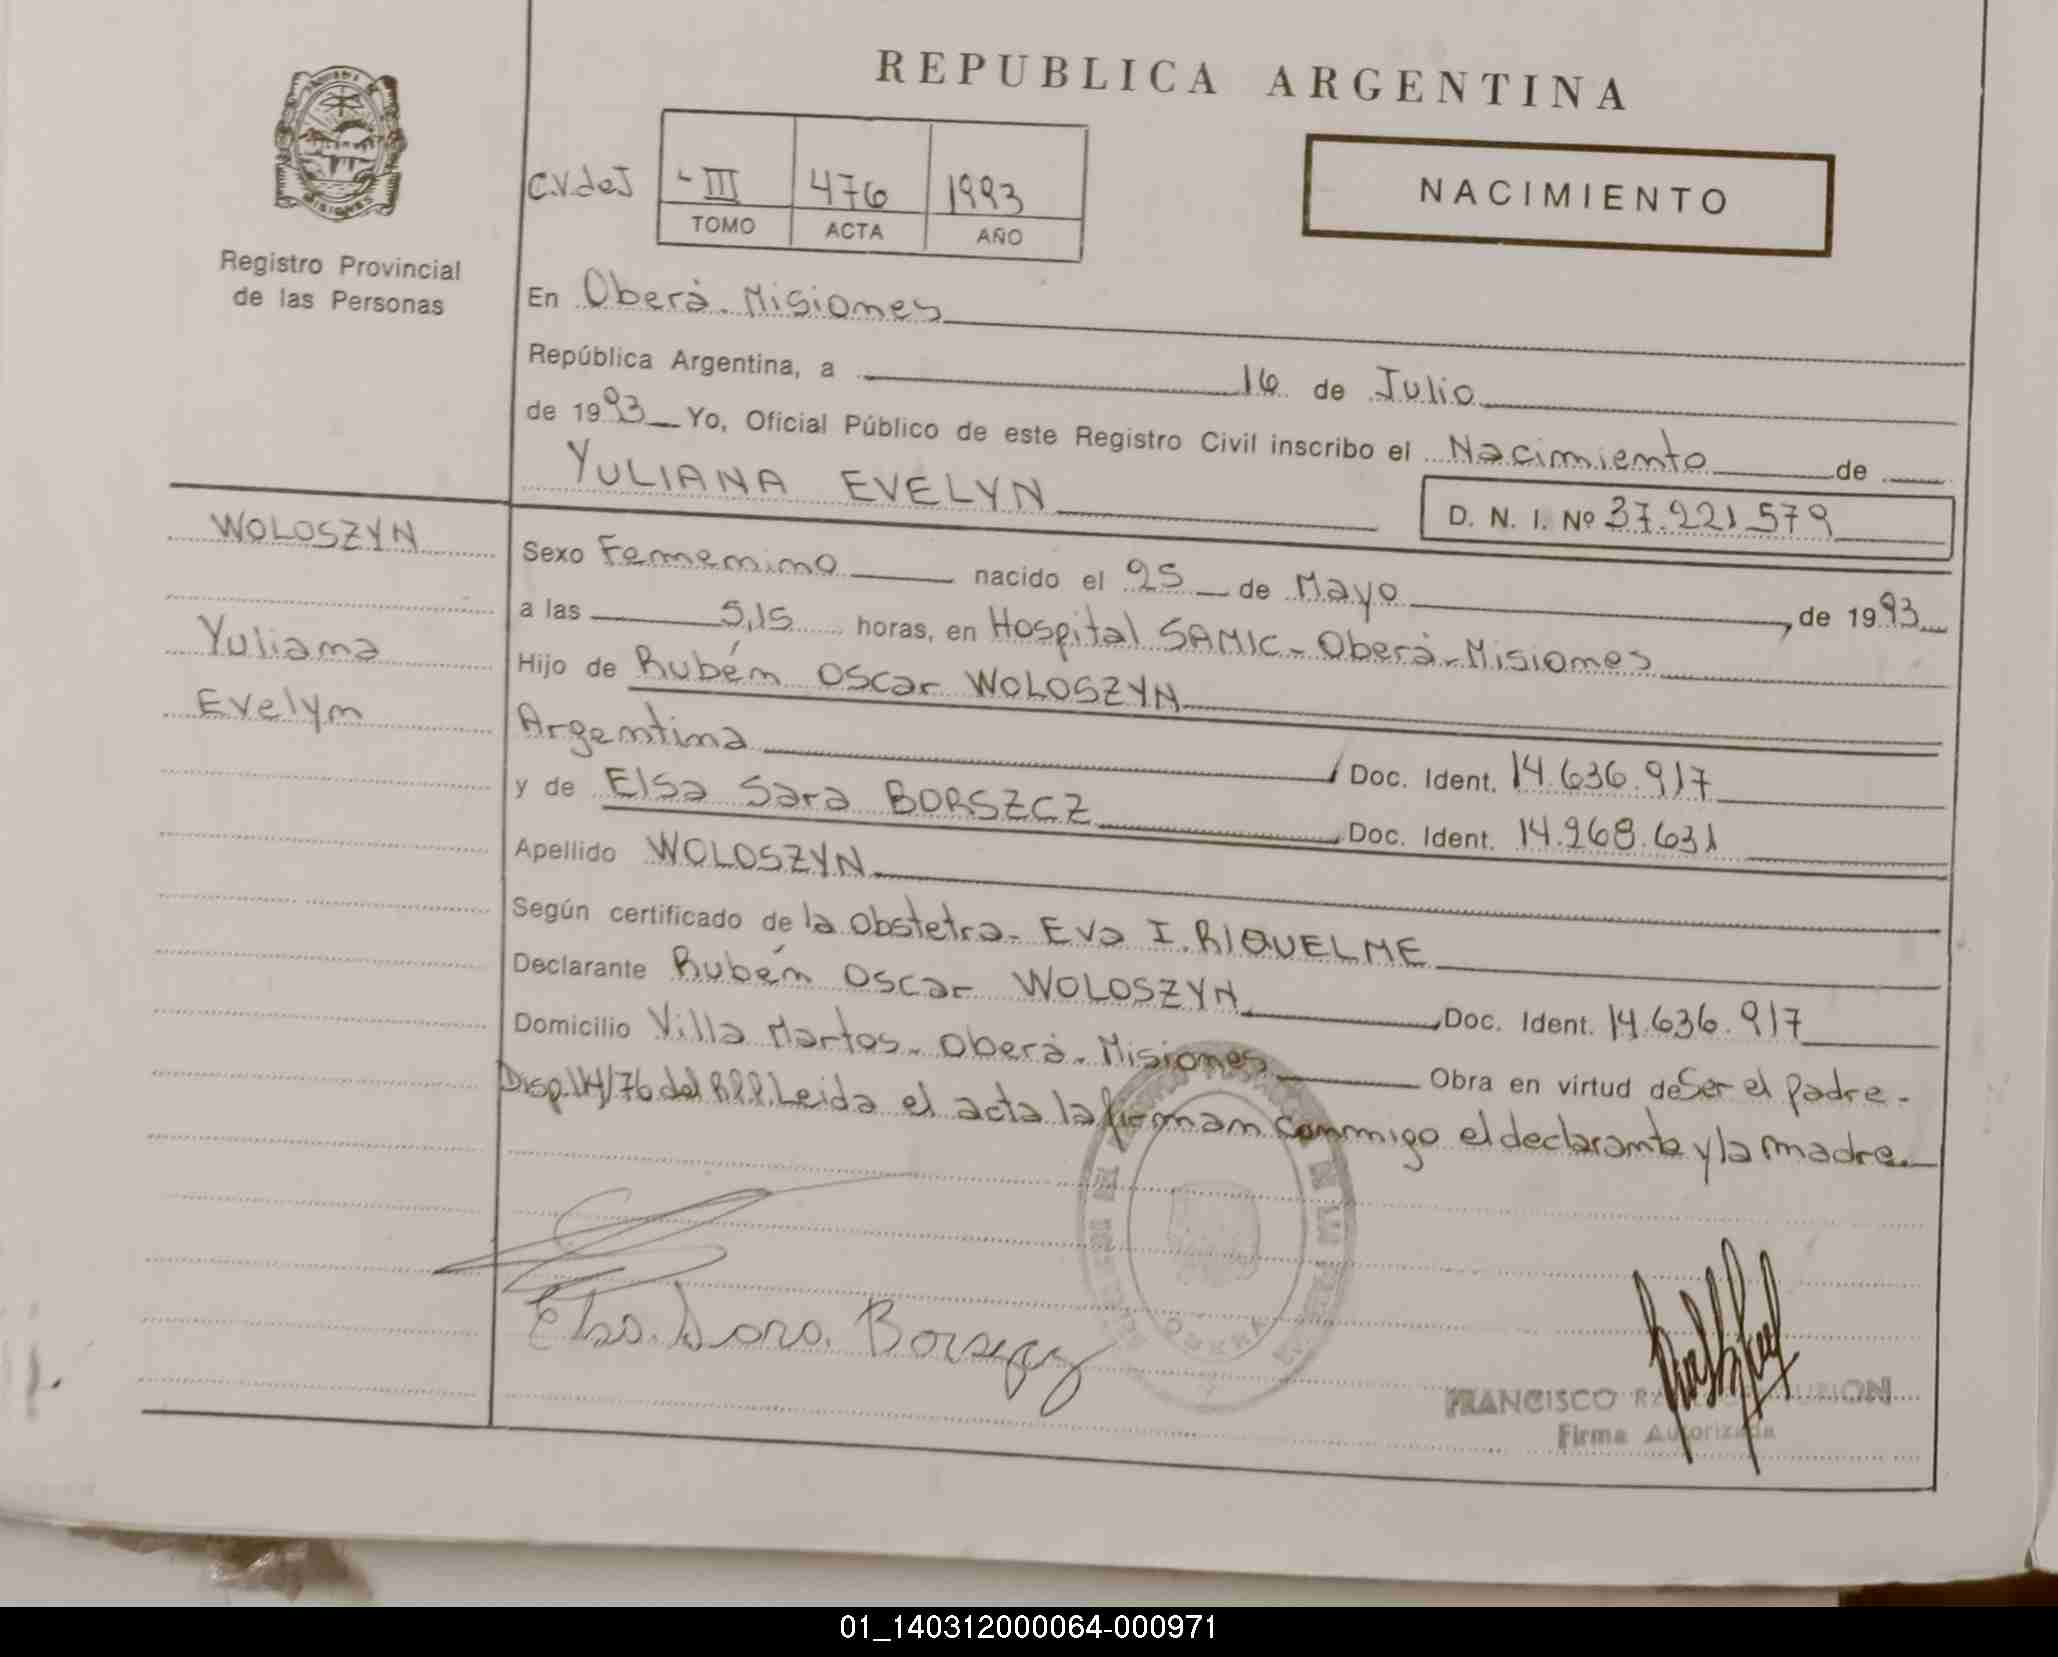 REPUBLICA ARGENTINA
MISIONES
Registro Provincial
de las Personas
C.V.deJ
III 476 1993
TOMO ACTA AÑO
NACIMIENTO
En Oberá - Misiones
República Argentina, a 16 de Julio
de 1993 Yo, Oficial Público de este Registro Civil inscribo el Nacimiento de
YULIANA EVELYN
D. N. I. Nº 37.221.579
WOLOSZYN
Yuliana
Evelyn
Sexo Femenino nacido el 25 de Mayo de 1993
a las 5,15 horas, en Hospital SAMIC - Oberá - Misiones
Hijo de Rubén Oscar WOLOSZYN
Argentina Doc. Ident. 14.636.917
y de Elsa Sara BORSZCZ Doc. Ident. 14.268.631
Apellido WOLOSZYN
Según certificado de la Obstetra - Eva I. RIQUELME
Declarante Rubén Oscar WOLOSZYN Doc. Ident. 14.636.917
Domicilio Villa Martos - Oberá - Misiones Obra en virtud de Ser el padre -
Disp. 114/76 del R.P.P. Leida el acta la firman conmigo el declarante y la madre
Elsa Sara Borszcz
FRANCISCO
Firma Autorizada
01_140312000064-000971